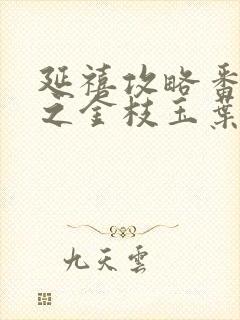 延禧攻略番
之金枝玉葉
九天雲